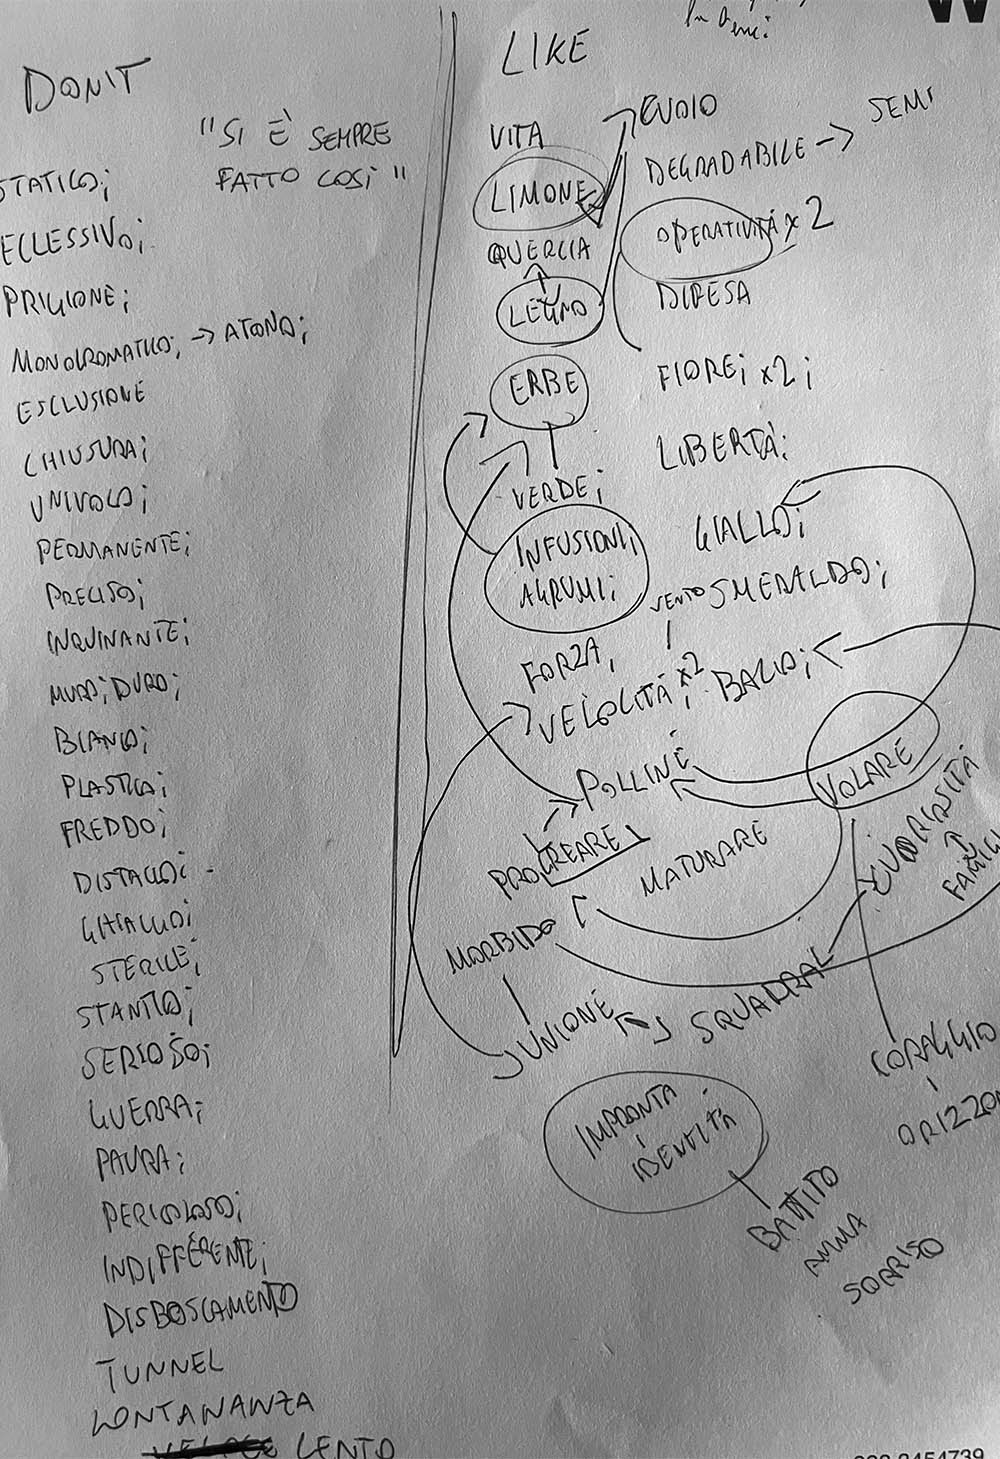 DON'T
"SI È SEMPRE
FATTO COSÌ"
STATICO;
ECCESSIVO;
PRIGIONE;
MONOCROMATICO; -> ATONO;
ESCLUSIONE
CHIUSURA;
UNIVOCO;
PERMANENTE;
PRECISO;
INQUINANTE;
MURO; DURO;
BIANCO;
PLASTICA;
FREDDO;
DISTACCO;
GHIACCIO;
STERILE;
STANTIO;
SERIOSO;
GUERRA;
PAURA;
PERICOLOSO;
INDIFFERENTE;
DISBOSCAMENTO
TUNNEL
LONTANANZA
VELOCE LENTO
LIKE
VITA
LIMONE
QUERCIA
LEGNO
ERBE
VERDE;
INFUSIONI,
AGRUMI;
FORZA,
VELOCITÀ, x2
POLLINE
PROCREARE
MATURARE
MORBIDO
UNIONE
SQUADRA
IMPRONTA
IDENTITÀ
BATTITO
ANIMA
SORRISO
CUOIO
DEGRADABILE -> SEMI
OPERATIVITÀ x2
DIFESA
FIORE; x2;
LIBERTÀ:
GIALLO;
VENTO SMERALDO;
BACIO;
VOLARE
CURIOSITÀ
CORAGGIO
W